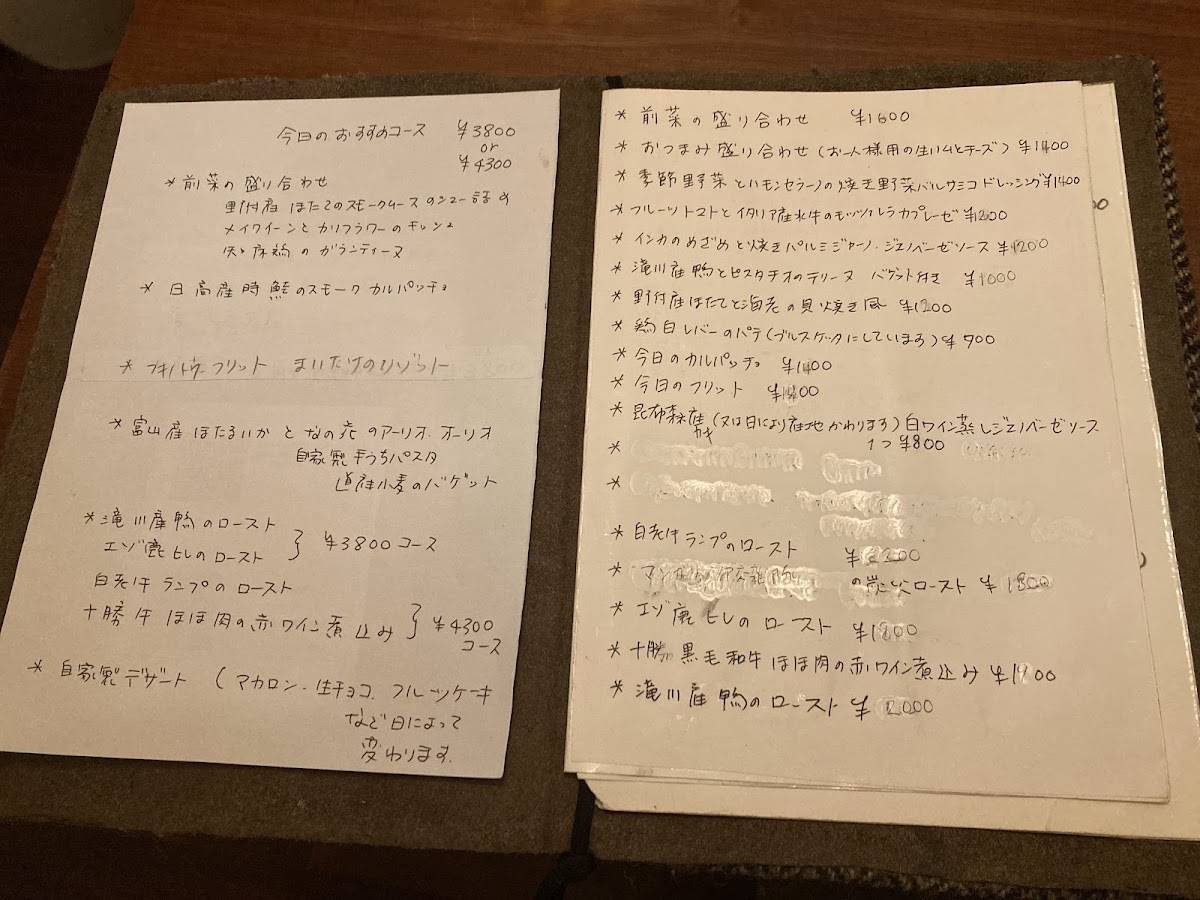 今日のおすすめコース ¥3800
or
¥4300
* 前菜の盛り合わせ
野付産 ほたてのスモーク
メイクイーンとカリフラワーの
知床鶏のガランティーヌ
* 日高産時鮭のスモーク カルパッチョ
* フキノトウ フリット まいたけのリゾット
* 富山産 ほたるいか と なの花 のアーリオ.オーリオ
自家製 手うちパスタ
道産小麦のバゲット
* 滝川産鴨のロースト
エゾ鹿ヒレのロースト } ¥3800 コース
白老牛 ランプの ロースト
十勝牛 ほほ肉の赤ワイン煮込み } ¥4300
コース
* 自家製デザート (マカロン・生チョコ.フルーツケーキ
など日によって
変わります.
* 前菜の盛り合わせ ¥1600
* おつまみ盛り合わせ(お一人様用の生ハムとチーズ) ¥1400
* 季節野菜とハモンセラーノの焼き野菜バルサミコドレッシング¥1400
* フルーツトマトとイタリア産水牛のモッツァレラ カプレーゼ ¥1200
* インカのめざめと焼きパルミジャーノ.ジェノベーゼソース ¥1200
* 滝川産鴨とピスタチオのテリーヌ バゲット付き ¥1000
* 野付産ほたてと海老の貝焼き風 ¥1200
* 鶏白レバーのパテ(ブルスケッタにしています) ¥700
* 今日のカルパッチョ ¥1400
* 今日のフリット
* 昆布森産(又は日により産地かわります)白ワイン蒸しジェノベーゼソース
カキ 1つ ¥800
*
*
* 白老牛ランプのロースト ¥2200
* の炭火ロースト ¥1800
* エゾ鹿ヒレのロースト ¥1800
* 十勝黒毛和牛ほほ肉の赤ワイン煮込み ¥1900
* 滝川産鴨のロースト ¥2000